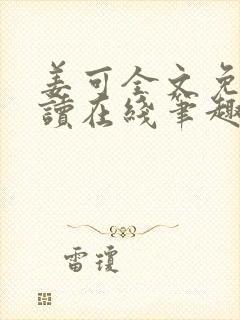 姜可全文免
讀在綫筆趣
雷瓊